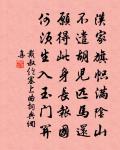 漢家旗幟滿陰山
不遣胡兒匹馬還
願得此身長報國
何須生入玉門關
戴叔伦塞上曲